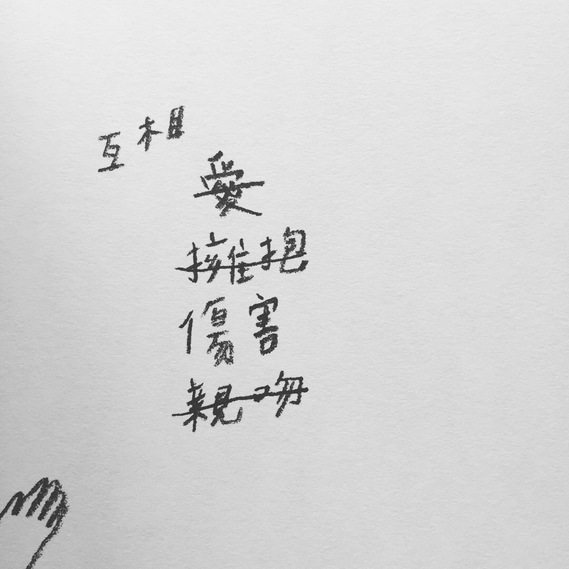 互相
愛
擁抱
傷害
親吻